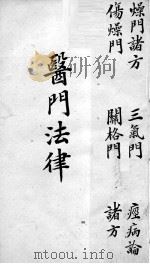 燥門諸方 三氣門 痙病論
傷燥門 關格門 諸方
醫門法律